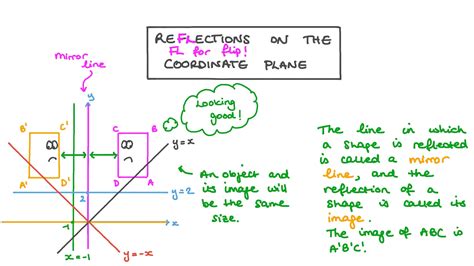 REFLECTIONS ON THE
FL for flip!
COORDINATE PLANE
mirror
line
y
B' C' C B
A' D' D A
Looking
good!
y=x
An object and
its image will
be the same
size.
y=2
2
-1
x
x=-1
y=-x
The line in which
a shape is reflected
is called a mirror
line, and the
reflection of a
shape is called its
image.
The image of ABC is
A'B'C'.